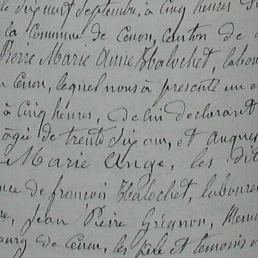 dix neuf septembre, à cinq heures d
la commune de Cenon, canton de
Pierre Marie Anne Halochet, labou
en Cenon, lequel nous à présenté un e
à cinq heures, de lui déclarant
âgée de trente dix ans, et auquel
Marie Ange, les dit
nce de françois Halochet, laboure
re, Jean Peire Grignon, Menu
ourg de Cenon, les père et temoins o